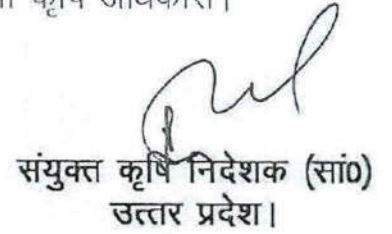 कृषि अधिकारी।
संयुक्त कृषि निदेशक (सां0)
उत्तर प्रदेश।